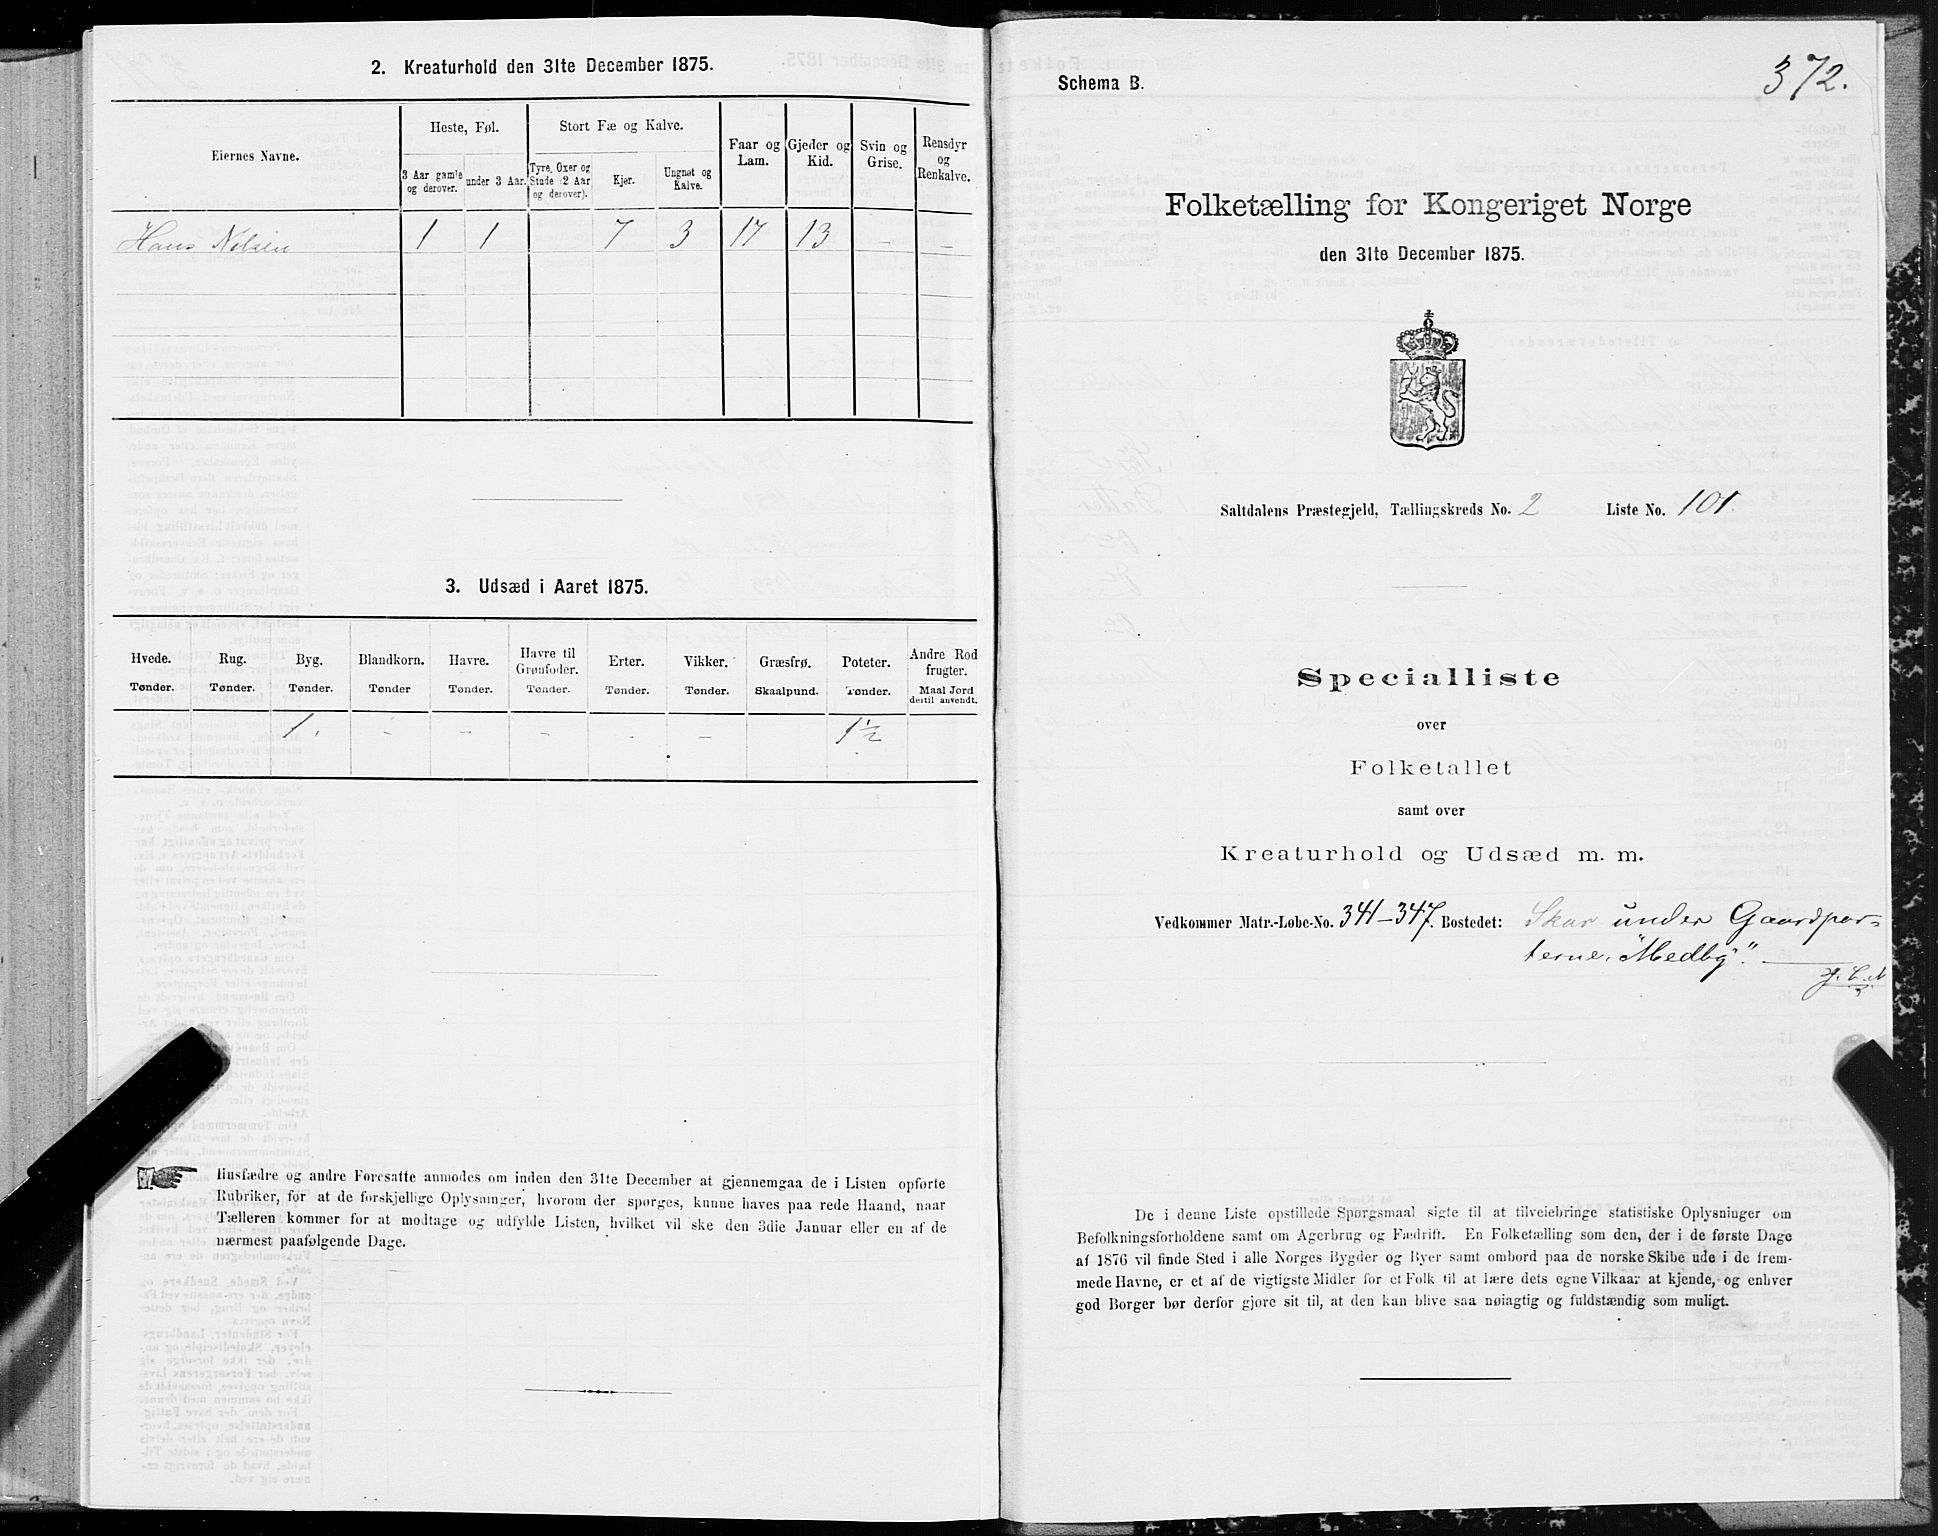 2. Kreaturhold den 31te December 1875.
Eiernes Navne.
Heste, Føl.
Stort Fæ og Kalve.
Faar og Lam.
Gjeder og Kid.
Svin og Grise.
Rensdyr og Renkalve.
3 Aar gamle og derover.
under 3 Aar.
Tyre, Oxer og Stude (2 Aar og derover).
Kjør.
Ungnøt og Kalve.
Hans Nilsen 1 1 7 3 17 13 – –
3. Udsæd i Aaret 1875.
Hvede. Rug. Byg. Blandkorn. Havre. Havre til Grønfoder. Erter. Vikker. Græsfrø. Poteter. Andre Rodfrugter.
Tønder. Tønder. Tønder. Tønder Tønder. Tønder. Tønder. Tønder. Skaalpund. Tønder. Maal Jord dertil anvendt.
1. – – – – – 1½
Husfædre og andre Foresatte anmodes om inden den 31te December at gjennemgaa de i Listen opførte
Rubriker, for at de forskjellige Oplysninger, hvorom der spørges, kunne haves paa rede Haand, naar
Tælleren kommer for at modtage og udfylde Listen, hvilket vil ske den 3die Januar eller en af de
nærmest paafølgende Dage.
372.
Schema B.
Folketælling for Kongeriget Norge
den 31te December 1875.
Saltdalens Præstegjeld, Tællingskreds No. 2 Liste No. 101.
Specialliste
over
Folketallet
samt over
Kreaturhold og Udsæd m. m.
Vedkommer Matr.-Løbe-No. 341–347. Bostedet: Skar under Gaardpar-
terne, "Medby".
De i denne Liste opstillede Spørgsmaal sigte til at tilveiebringe statistiske Oplysninger om
Befolkningsforholdene samt om Agerbrug og Fædrift. En Folketælling som den, der i de første Dage
af 1876 vil finde Sted i alle Norges Bygder og Byer samt ombord paa de norske Skibe ude i de frem-
mede Havne, er et af de vigtigste Midler for et Folk til at lære dets egne Vilkaar at kjende, og enhver
god Borger bør derfor gjøre sit til, at den kan blive saa nøiagtig og fuldstændig som muligt.